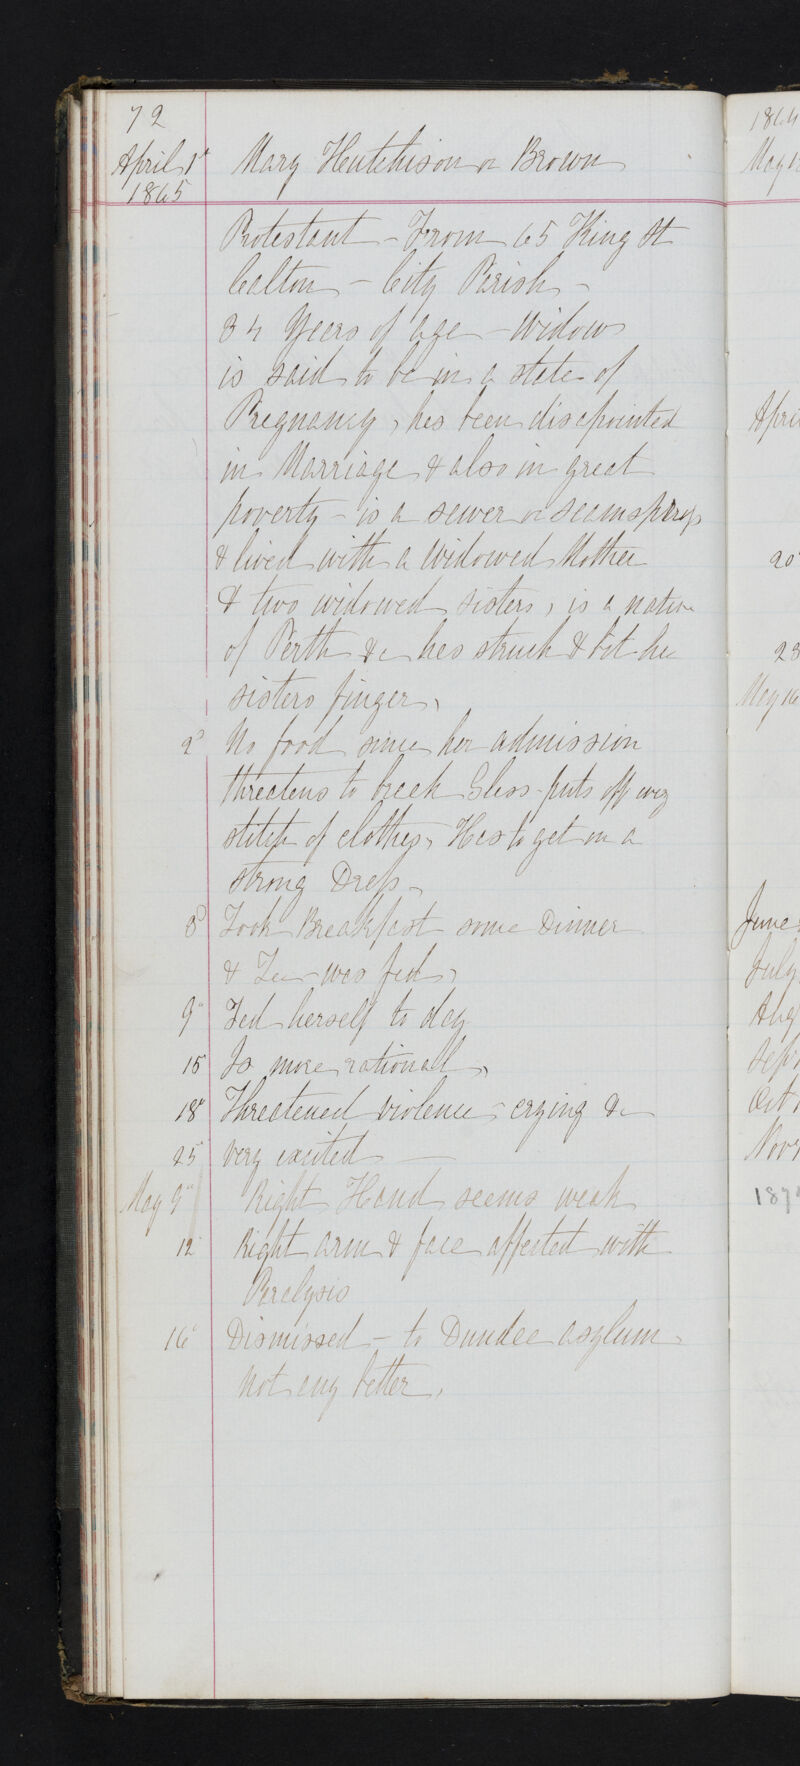 72
April 1st Mary Hutchison or Brown
1865
Protestant - From 65 King St
Calton - City Parish -
34 Years of age - Widow
is said to be in a state of
Pregnancy, has been disapointed
in Marriage & also in great
poverty - is a sewer or seamstress
& lived with a Widowed Mother
& two widowed sisters, is a native
of Perth &c has struck & bit her
sisters finger,
2d No food since her admission
threatens to break Glass - puts off every
stitch of clothes, Has to get on a
strong Dress -
8 Took Breakfast some Dinner
& Tea - was fed,
9th Fed herself to day
15 Is more rational,
18th Threatened violence - crying &c
25 very excited -
May 9th Right Hand seems weak
12 Right arm & face affected with
Paralysis
16 Dismissed - to Dundee asylum -
Not any better,
1864
May
April
20
23
May 16
June
July
Aug
Sept
Oct
Nov
187